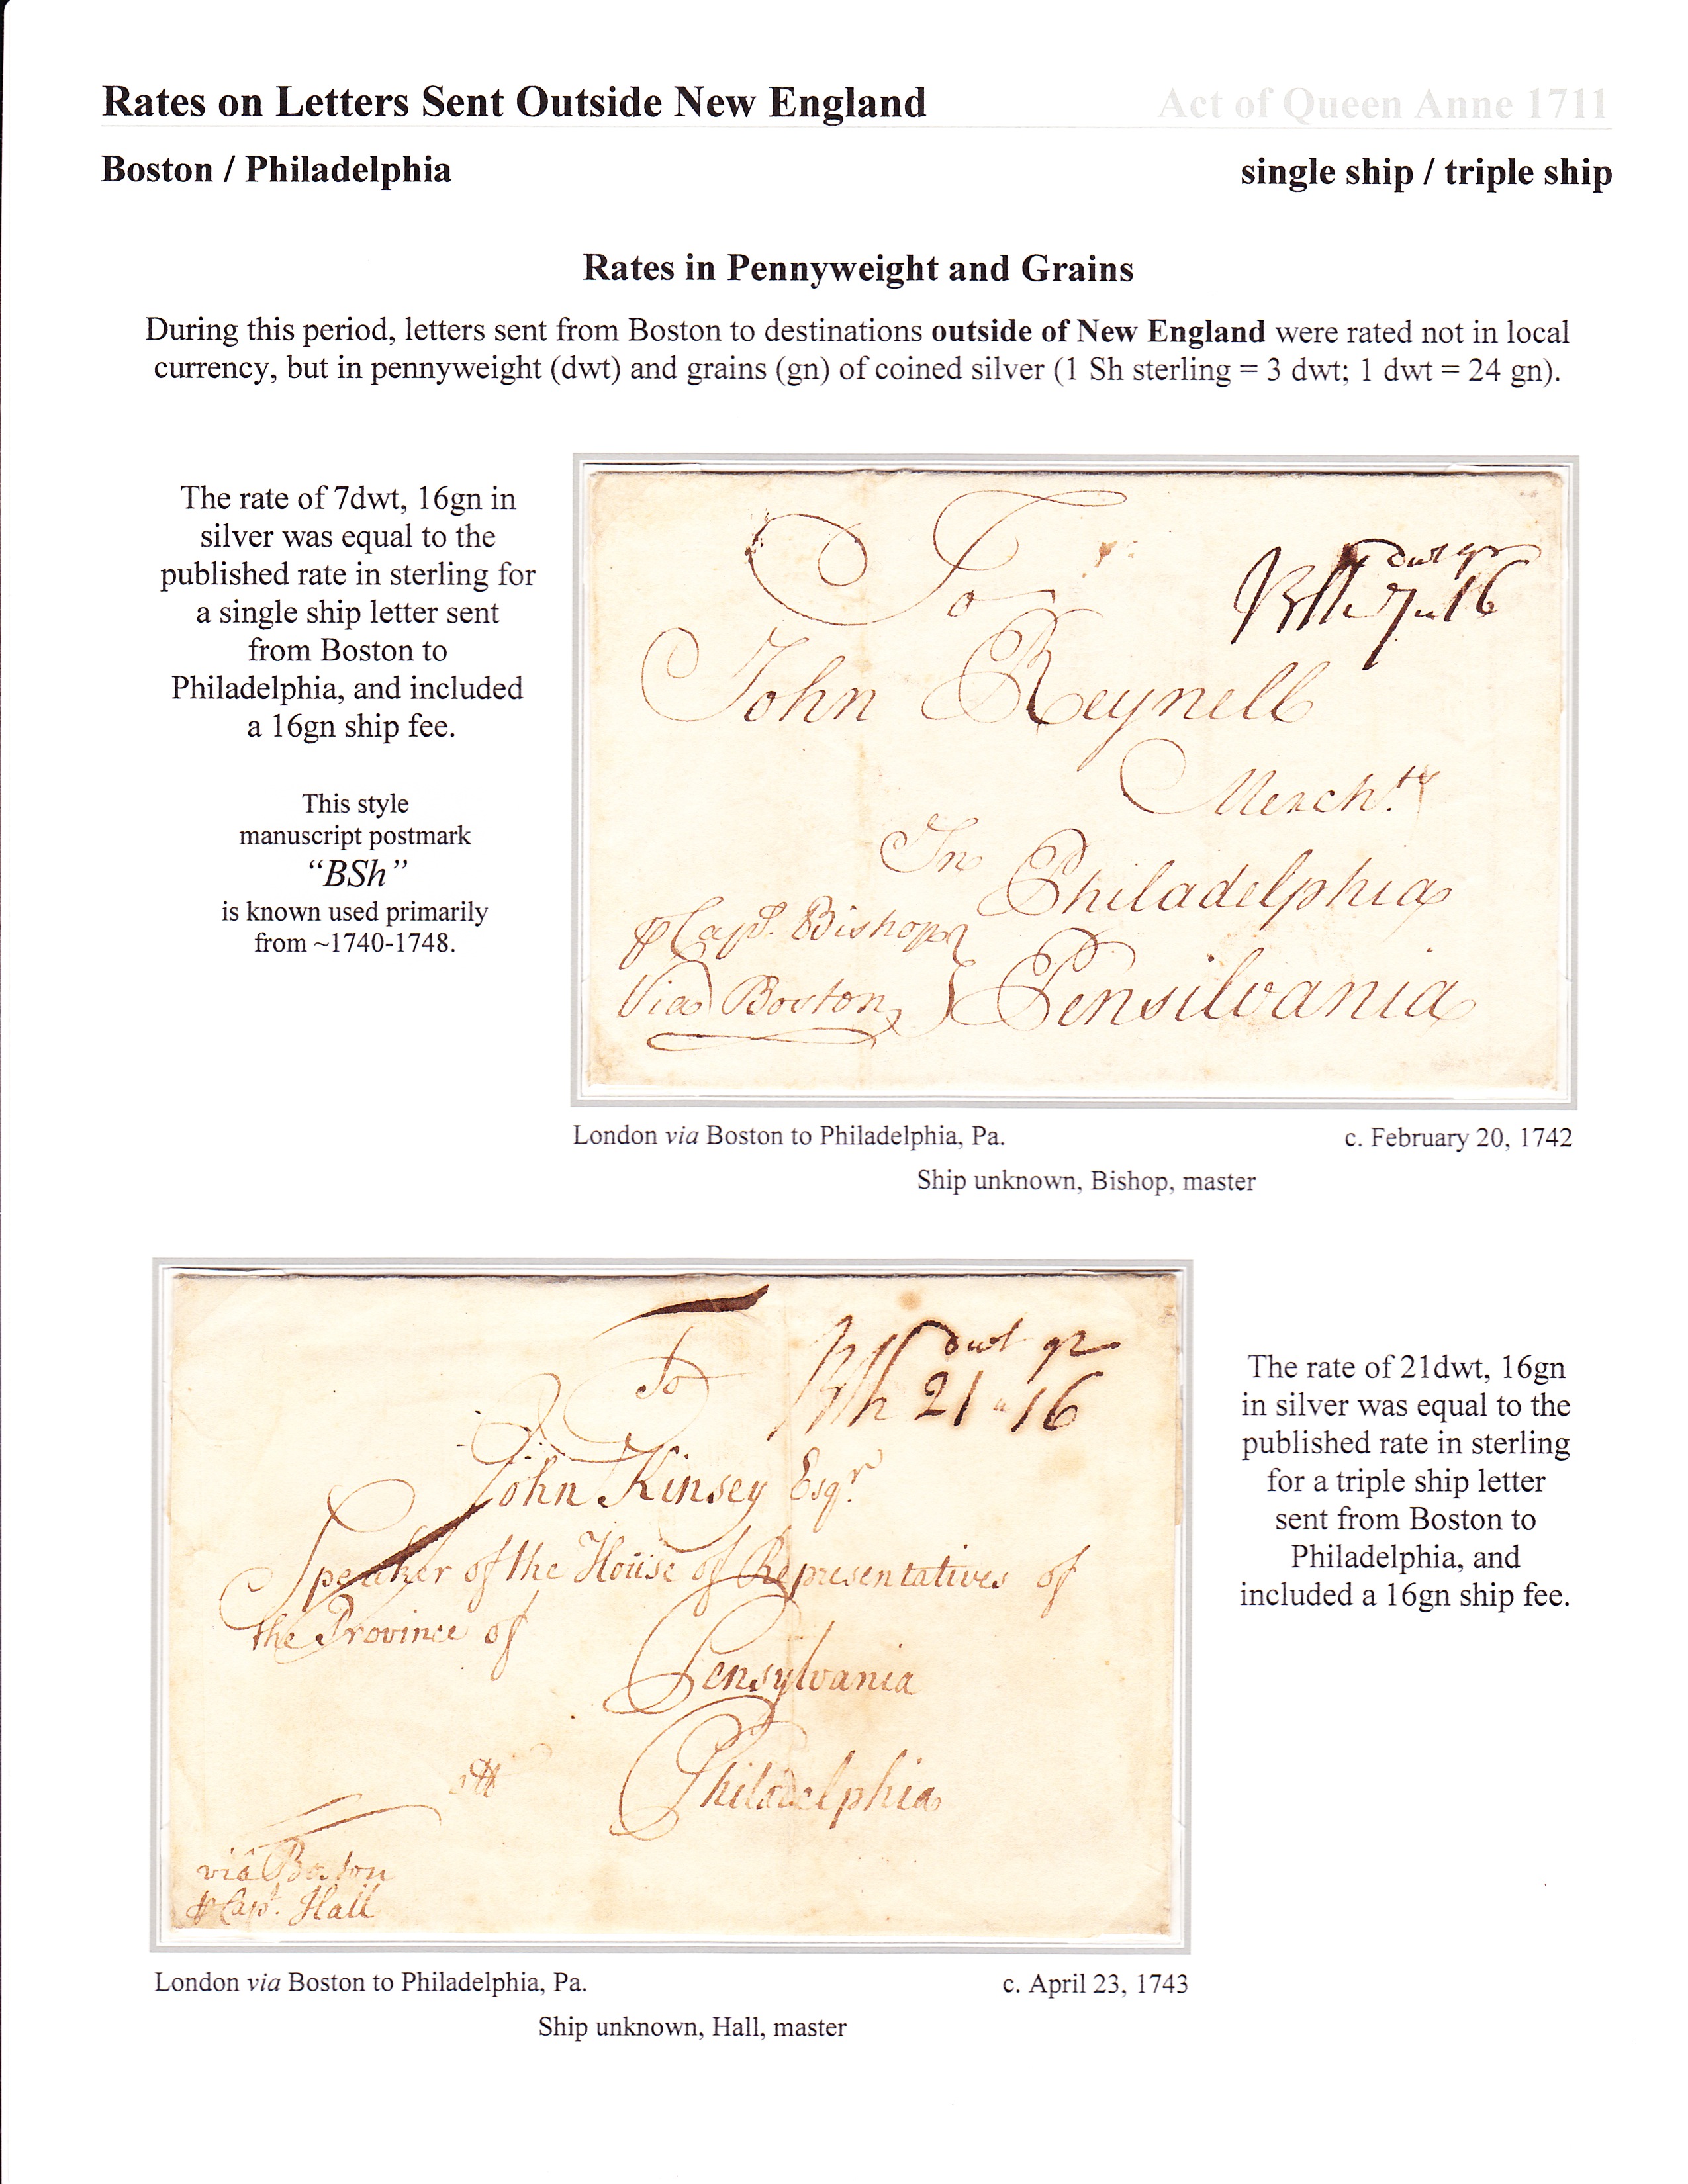 Rates on Letters Sent Outside New England
Act of Queen Anne 1711
Boston / Philadelphia
single ship / triple ship
Rates in Pennyweight and Grains
During this period, letters sent from Boston to destinations outside of New England were rated not in local
currency, but in pennyweight (dwt) and grains (gn) of coined silver (1 Sh sterling = 3 dwt; 1 dwt = 24 gn).
The rate of 7dwt, 16gn in
silver was equal to the
published rate in sterling for
a single ship letter sent
from Boston to
Philadelphia, and included
a 16gn ship fee.
This style
manuscript postmark
“BSh”
is known used primarily
from ~1740-1748.
To
dwt gr
BSh 7 " 16
John Reynell
Mercht
In Philadelphia
Capt. Bishop
Via Boston
Pensilvania
London via Boston to Philadelphia, Pa.
c. February 20, 1742
Ship unknown, Bishop, master
To
dwt gr
BSh 21 " 16
John Kinsey Esqr.
Speaker of the House of Representatives of
the Province of
Pensylvania
att Philadelphia
viâ Boston
Capt. Hall
The rate of 21dwt, 16gn
in silver was equal to the
published rate in sterling
for a triple ship letter
sent from Boston to
Philadelphia, and
included a 16gn ship fee.
London via Boston to Philadelphia, Pa.
c. April 23, 1743
Ship unknown, Hall, master